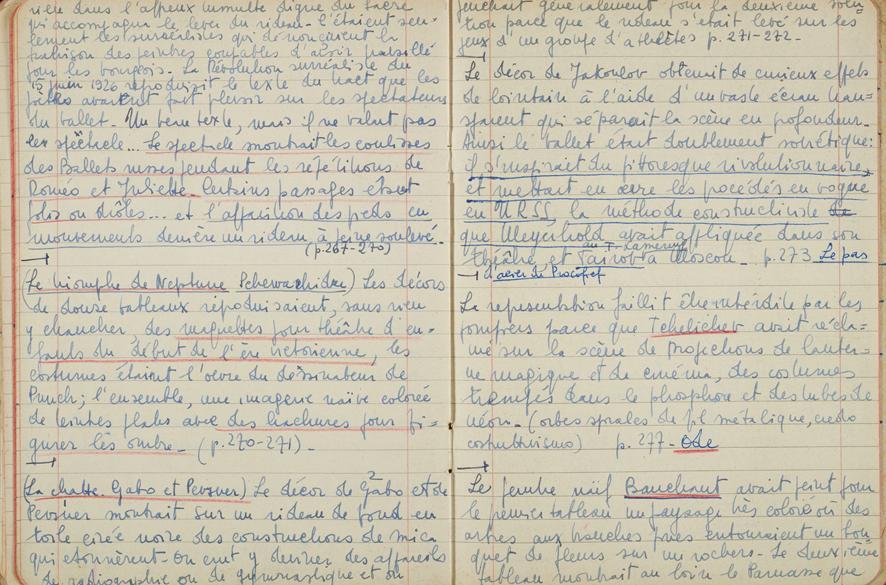 rien dans l'affreux tumulte digne du sacre
qui accompagna le lever du rideau - C'étaient seu-
lement les surréalistes qui dénonçaient la
trahison des peintres coupables d'avoir travaillé
pour les bourgeois - La Révolution surréaliste du
15 juin 1926 reproduisit le texte du tract que les
avaient fait pleuvoir sur les spectateurs
du ballet - Un beau texte, mais il ne valait pas
le spectacle... Le spectacle montrait les coulisses
des Ballets russes pendant les répétitions de
Roméo et Juliette. Certains passages étaient
jolis ou drôles... et l'apparition des pieds en
mouvements derrière un rideau à peine soulevé -
(p. 267-270)
(Le triomphe de Neptune Pchervachidze) Les décors
de douze tableaux reproduisaient, sans rien
y chancher, des maquettes pour théâtre d'en-
fants du début de l'ère victorienne, les
costumes étaient l'oevre du déssinateur de
Punch; l'ensemble, une imagerie naïve coloriée
de teintes plates avec des hachures pour fi-
gurer les ombre - (p. 270-271)
(La chatte. Gabo et Pevsner) Le décor de Gabo et de
Pevsner montrait sur un rideau de fond en
toile cirée noire des constructions de mica
qui étonnèrent - On crut y deviner des appareils
de radiographie ou de gymnastique et on
penchait généralement pour la deuxième solu-
tion parce que le rideau s'était levé sur les
jeux d'un groupe d'athlètes p. 271-272 -
Le décor de Jakoulov obtenait de curieux effets
de lointain à l'aide d'un vaste écran trans-
parent qui séparait la scène en profondeur -
Ainsi le ballet était doublement soviétique:
il s'inspirait du pittoresque révolutionnaire,
et mettait en oevre les pocédés en vogue
en URSS, la méthode constructiviste de
que Meyerhold avait appliquée dans son
théâtre et Tairov à Moscou - p. 273 Le pas
d'acier de Procofief
La representation faillit être interdite par les
pompiers parce que Tchelichev avait récla-
mé sur la scène de projections de lanter-
ne magique et de cinéma, des costumes
trempés dans le phosphore et des tubes de
néon - (orbes spirales de fil métalique,
) p. 277 - Ode
Le peintre naïf Bauchant avait peint pour
le premier tableau un paysage très coloré où des
arbres aux branches entouraient un bou-
quet de fleurs sur un rochers - Le deuxième
tableau montrait au loin le Parnasse que